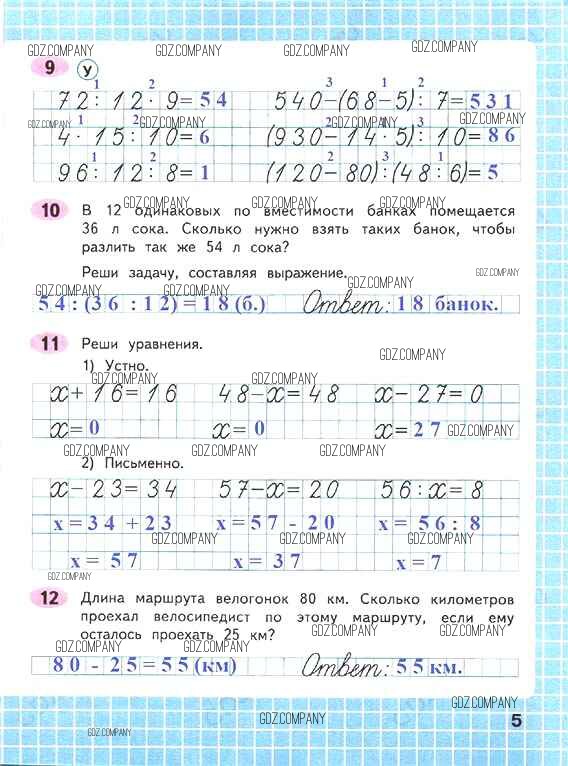 GDZ.COMPANY GDZ.COMPANY GDZ.COMPANY GDZ.COMPANY
9 У
1 2 3 1 2
72 : 12 · 9 = 54 540 - (68 - 5) : 7 = 531
GDZ.COMPANY GDZ.COMPANY GDZ.COMPANY GDZ.COMPANY
1 2 2 1 3
4 · 15 : 10 = 6 (930 - 14 · 5) : 10 = 86
GDZ.COMPANY GDZ.COMPANY GDZ.COMPANY GDZ.COMPANY
1 2 1 3 2
96 : 12 : 8 = 1 (120 - 80) : (48 : 6) = 5
GDZ.COMPANY GDZ.COMPANY GDZ.COMPANY GDZ.COMPANY
10 В 12 одинаковых по вместимости банках помещается
36 л сока. Сколько нужно взять таких банок, чтобы
разлить так же 54 л сока?
Реши задачу, составляя выражение. GDZ.COMPANY
GDZ.COMPANY GDZ.COMPANY GDZ.COMPANY GDZ.COMPANY
54 : (36 : 12) = 18 (б.) Ответ: 18 банок.
11 Реши уравнения.
GDZ.COMPANY
1) Устно.
GDZ.COMPANY GDZ.COMPANY
x + 16 = 16 48 - x = 48 x - 27 = 0
x = 0 x = 0 x = 27 GDZ.COMPANY
GDZ.COMPANY GDZ.COMPANY GDZ.COMPANY
2) Письменно.
x - 23 = 34 57 - x = 20 56 : x = 8
x = 34 + 23 x = 57 - 20 x = 56 : 8
GDZ.COMPANY GDZ.COMPANY GDZ.COMPANY
x = 57 x = 37 x = 7
GDZ.COMPANY
12 Длина маршрута велогонок 80 км. Сколько километров
проехал велосипедист по этому маршруту, если ему
осталось проехать 25 км? GDZ.COMPANY GDZ.COMPANY
GDZ.COMPANY GDZ.COMPANY GDZ.COMPANY GDZ.COMPANY
80 - 25 = 55 (км) Ответ: 55 км.
GDZ.COMPANY
GDZ.COMPANY 5
GDZ.COMPANY